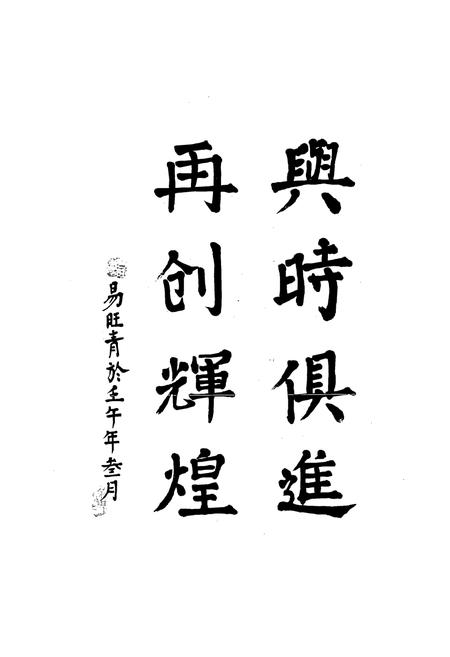 與時俱進
再创輝煌
易旺青於壬午年叁月